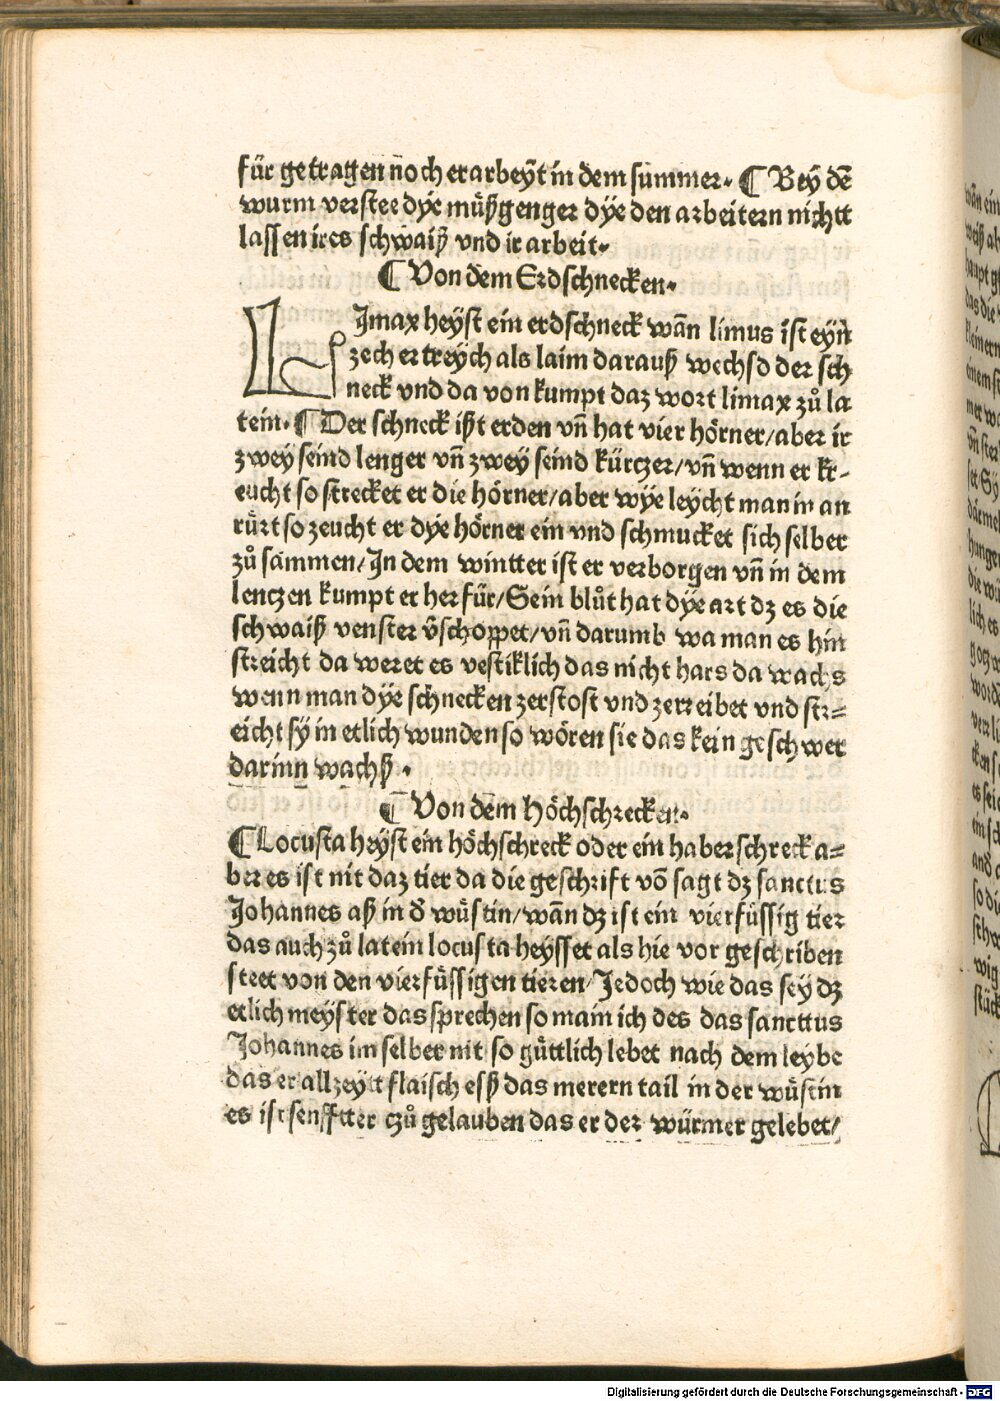 für getragen noch er arbeyt̄ in dem summer. ¶ Bey dē
wurm verstee dye müßgenger dye den arbeitern nichtt
lassen ires schwaiß vnd ir arbeit.
¶ Von dem Erdschnecken.
LImax heyst ein erdschneck wān limus ist eyn
zech ertreych als laim darauß wechsd der sch
neck vnd da von kumpt daz wort limax zů la
tein. ¶ Der schneck ißt erden vn̄ hat vier hörner/aber ir
zwey seind lenger vn̄ zwey seind kürczer/vn̄ wenn er kr-
eucht so strecket er die hörner/aber wye leycht man in an
rürt so zeucht er dye hörner ein vnd schmucket sich selber
zů sammen/In dem wintter ist er verborgen vn̄ in dem
lenczen kumpt er her für/Sein blůt hat dye art dz es die
schwaiß venster v̄schoppet/vn̄ darumb wa man es hin
streicht da weret es vestiklich das nicht hars da wachs
wenn man dye schnecken zerstost vnd zerreibet vnd str=
eicht sy in etlich wunden so wören sie das kein geschwer
darinn wachß.
¶ Von dem Höchschrecken.
¶ Locusta heyst ein höchschreck oder ein haberschreck a=
ber es ist nit daz tier da die geschrift vō sagt dz sanctus
Johannes aß in d̄ wüstin/wān dz ist ein vierfüssig tier
das auch zů latein locusta heysset als hie vor geschriben
steet von den vierfüssigen tieren/Jedoch wie das sey dz
etlich meyster das sprechen so main ich des das sancttus
Johannes im selber nit so güttlich lebet nach dem leybe
das er allzeytt flaisch eß das merern tail in der wüstin
es ist senfftter czů gelauben das er der würmer gelebet/
wān ein
weiß
haupt
das die
kleinern
Digitalisierung gefördert durch die Deutsche Forschungsgemeinschaft - DFG